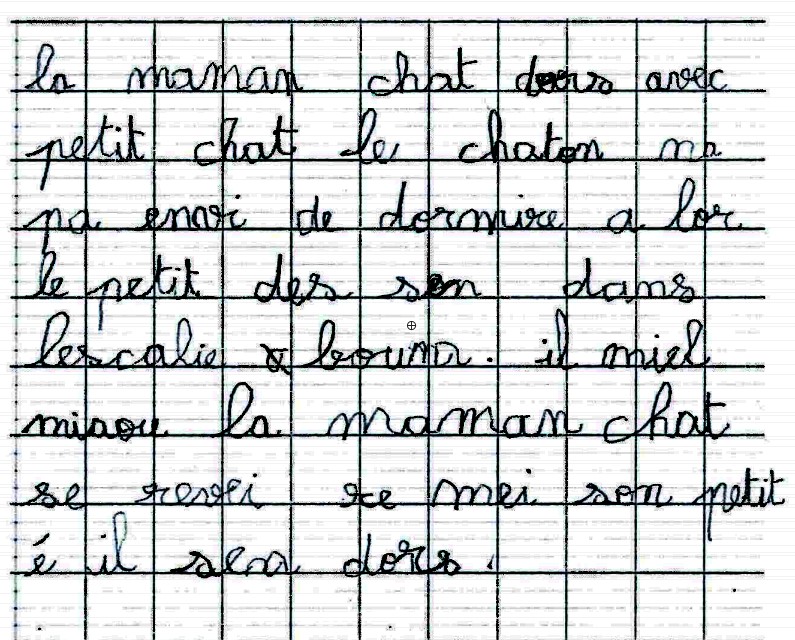 la maman chat dors avec
petit chat le chaton na
pa envi de dormire a lor
le petit des son dans
lescalie boum. il miel
miaou la maman chat
se revei re mei son petit
é il sen dors.